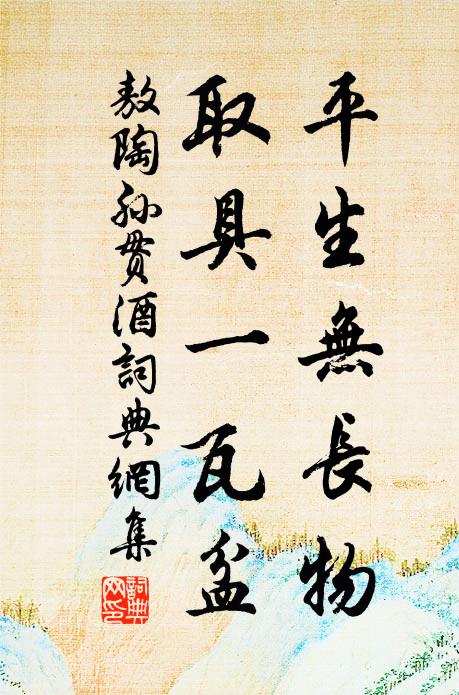 平生無長物
取具一瓦盆
敖陶孙貰酒詞典網集
詞典網印